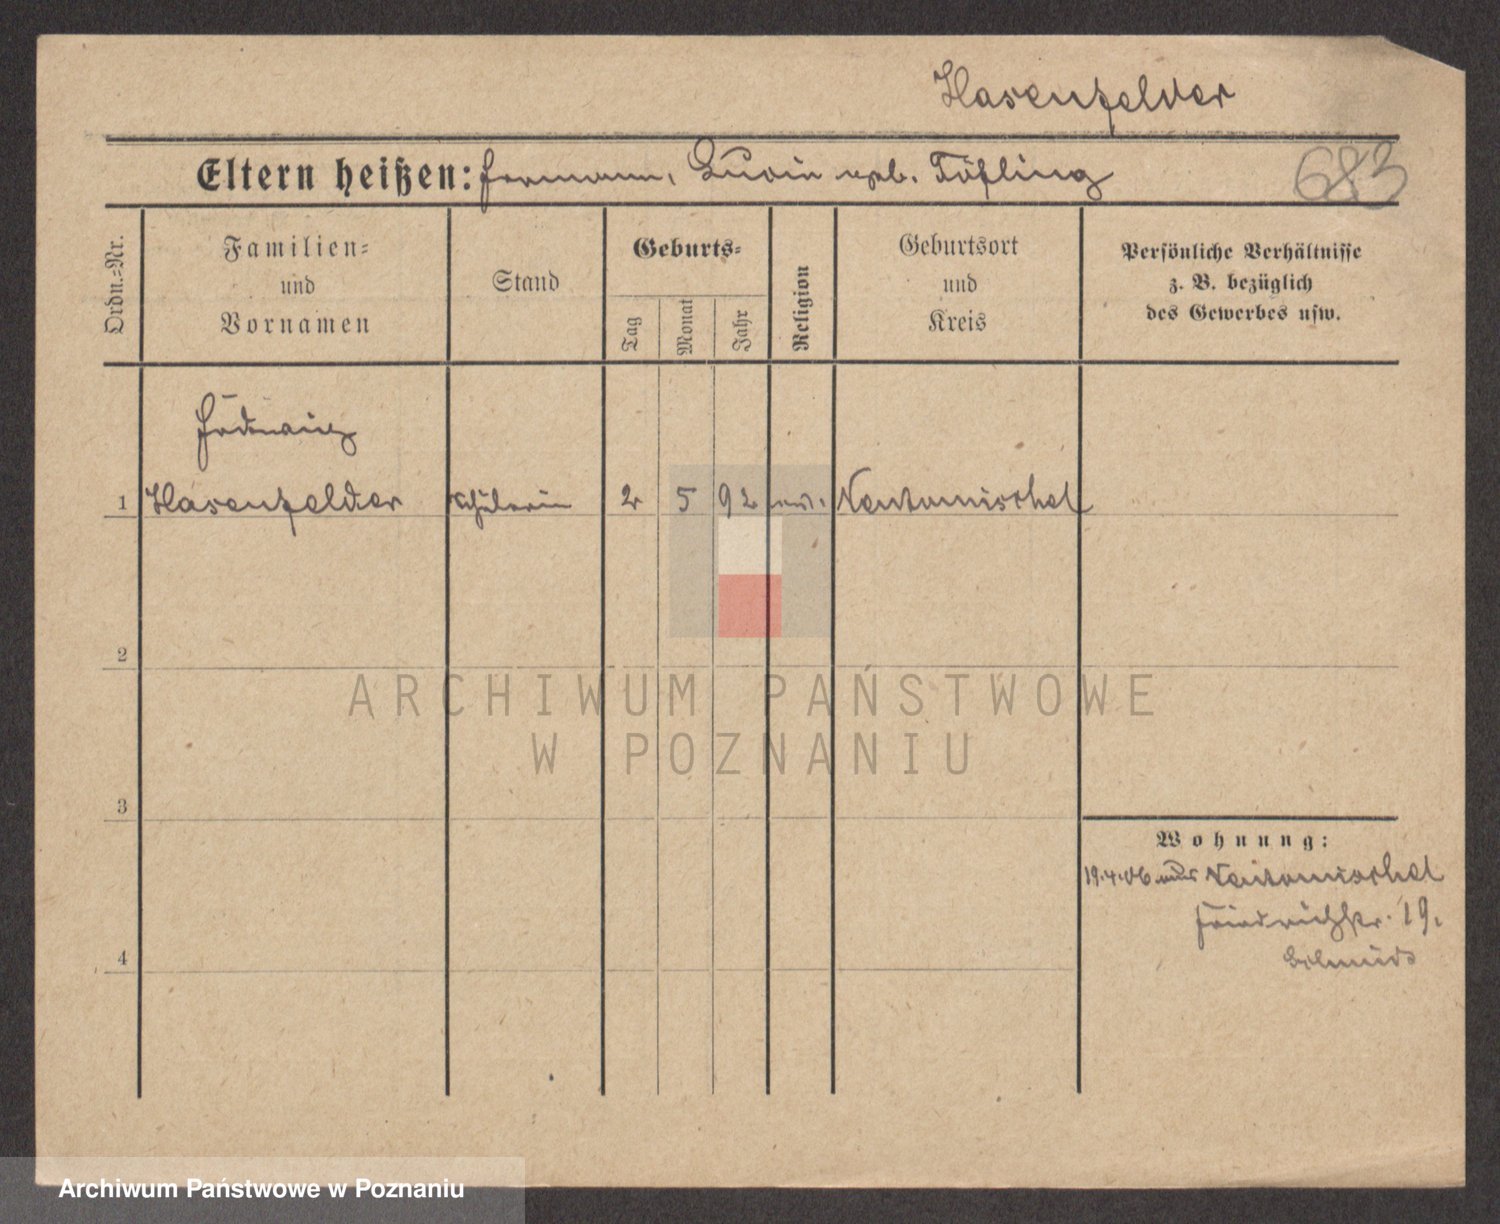 Hasenfelder
683
Eltern heißen: Hermann, Lucie geb. Töfling
Ordn.=Nr.
Familien=
und
Vornamen
Stand
Geburts=
Tag
Monat
Jahr
Religion
Geburtsort
und
Kreis
Persönliche Verhältnisse
z. B. bezüglich
des Gewerbes usw.
Hedwig
1 Hasenfelder Schülerin 2 5 92 ev. Neutomischel
2
ARCHIWUM PAŃSTWOWE
W POZNANIU
3
Wohnung:
19.4.06 aus Neutomischel
Friedrichstr. 19.
4
Archiwum Państwowe w Poznaniu